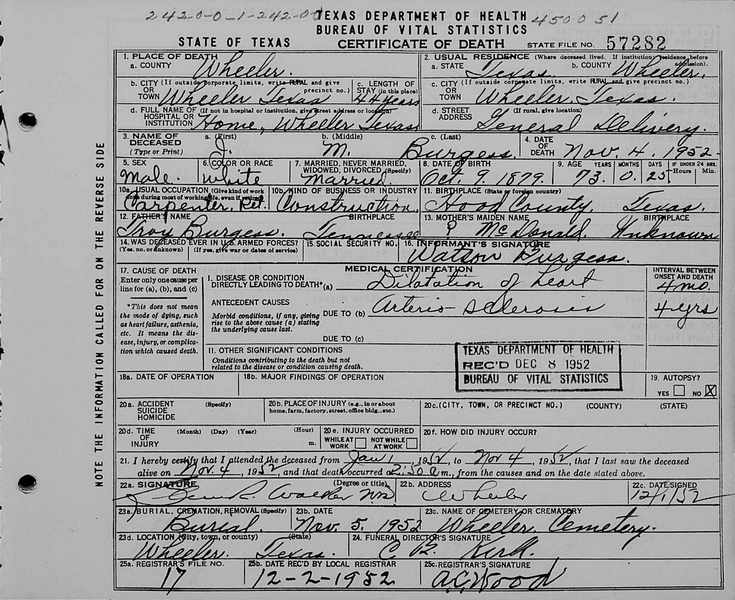 242-0-0-1-242-0 TEXAS DEPARTMENT OF HEALTH 450051
BUREAU OF VITAL STATISTICS
STATE OF TEXAS CERTIFICATE OF DEATH STATE FILE NO. 57282
1. PLACE OF DEATH
a. COUNTY Wheeler.
2. USUAL RESIDENCE (Where deceased lived. If institution: residence before admission).
a. STATE Texas b. COUNTY Wheeler.
b. CITY (If outside corporate limits, write RURAL and give precinct no.)
OR TOWN Wheeler Texas
c. LENGTH OF STAY (in this place) 44 years
c. CITY (If outside corporate limits, write RURAL and give precinct no.)
OR TOWN Wheeler, Texas.
d. FULL NAME OF (If not in hospital or institution, give street address or location)
HOSPITAL OR INSTITUTION Home, Wheeler Texas
d. STREET ADDRESS (If rural, give location)
General Delivery.
3. NAME OF DECEASED (Type or Print)
a. (First) J. b. (Middle) M. c. (Last) Burgess
4. DATE OF DEATH Nov. 4, 1952.
5. SEX Male.
6. COLOR OR RACE White
7. MARRIED, NEVER MARRIED, WIDOWED, DIVORCED (Specify) Married
8. DATE OF BIRTH Oct. 9, 1879.
9. AGE YEARS 73 MONTHS 0 DAYS 25 IF UNDER 24 HRS. Hours Min.
10a. USUAL OCCUPATION (Give kind of work done during most of working life, even if retired) Carpenter, Ret.
10b. KIND OF BUSINESS OR INDUSTRY Construction
11. BIRTHPLACE (State or foreign country) Hood County, Texas.
12. FATHER'S NAME BIRTHPLACE
Troy Burgess. Tennessee
13. MOTHER'S MAIDEN NAME BIRTHPLACE
? McDonald Unknown
14. WAS DECEASED EVER IN U.S. ARMED FORCES?
(Yes, no, or unknown) (If yes, give war or dates of service)
15. SOCIAL SECURITY NO.
16. INFORMANT'S SIGNATURE
Watson Burgess.
17. CAUSE OF DEATH
Enter only one cause per line for (a), (b), and (c)
*This does not mean the mode of dying, such as heart failure, asthenia, etc. It means the disease, injury, or complication which caused death.
MEDICAL CERTIFICATION
INTERVAL BETWEEN ONSET AND DEATH
I. DISEASE OR CONDITION DIRECTLY LEADING TO DEATH*(a) Dilatation of heart 4 mo.
ANTECEDENT CAUSES
Morbid conditions, if any, giving rise to the above cause (a) stating the underlying cause last.
DUE TO (b) Arterio sclerosis 4 yrs
DUE TO (c)
11. OTHER SIGNIFICANT CONDITIONS
Conditions contributing to the death but not related to the disease or condition causing death.
TEXAS DEPARTMENT OF HEALTH
REC'D DEC 8 1952
BUREAU OF VITAL STATISTICS
18a. DATE OF OPERATION
18b. MAJOR FINDINGS OF OPERATION
19. AUTOPSY?
YES NO X
20a. ACCIDENT (Specify)
SUICIDE
HOMICIDE
20b. PLACE OF INJURY (e.g., in or about home, farm, factory, street, office bldg., etc.)
20c. (CITY, TOWN, OR PRECINCT NO.) (COUNTY) (STATE)
20d. TIME OF INJURY (Month) (Day) (Year) (Hour) m.
20e. INJURY OCCURRED
WHILE AT WORK NOT WHILE AT WORK
20f. HOW DID INJURY OCCUR?
21. I hereby certify that I attended the deceased from Jan 1, 1952, to Nov 4, 1952, that I last saw the deceased
alive on Nov. 4, 1952, and that death occurred 2:30 a m., from the causes and on the date stated above.
22a. SIGNATURE (Degree or title)
R. Walker MD
22b. ADDRESS
Wheeler
22c. DATE SIGNED
12/1/52
23a. BURIAL, CREMATION, REMOVAL (Specify)
Burial
23b. DATE
Nov. 5. 1952
23c. NAME OF CEMETERY OR CREMATORY
Wheeler Cemetery.
23d. LOCATION (City, town, or county) (State)
Wheeler. Texas.
24. FUNERAL DIRECTOR'S SIGNATURE
Kirk.
25a. REGISTRAR'S FILE NO.
17
25b. DATE REC'D BY LOCAL REGISTRAR
12-2-1952
25c. REGISTRAR'S SIGNATURE
A.C. Wood
NOTE THE INFORMATION CALLED FOR ON THE REVERSE SIDE